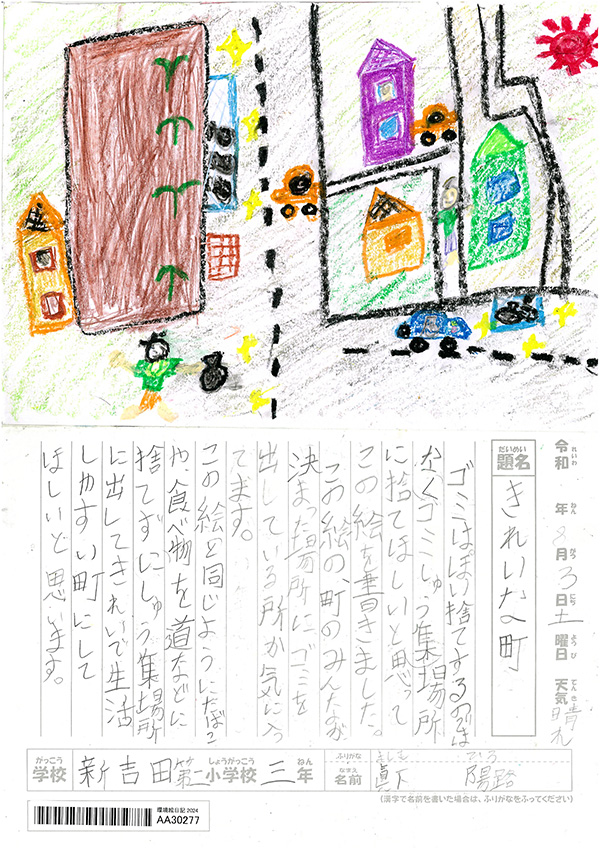 令和 年 8月3日 土曜日 天気 晴れ
れいわ ねん がつ にち ようび てんき
だいめい
題名 きれいな町
ゴミはぽい捨てするのでは
なくゴミしゅう集場所
に捨てほしいと思って
この絵を書きました。
この絵の、町のみんなが
決まった場所にゴミを
出している所が気に入っ
てます。
この絵と同じようにたばこ
や、食べ物を道などに
捨てずにしゅう集場所
に出してきれいで生活
しやすい町にして
ほしいと思います。
がっこう しょうがっこう ねん ふりがな ましも ひろ
学校 新吉田第二小学校 三年 なまえ 名前 眞下 陽路
(漢字で名前を書いた場合は、ふりがなをふってください)
環境絵日記 2024
AA30277